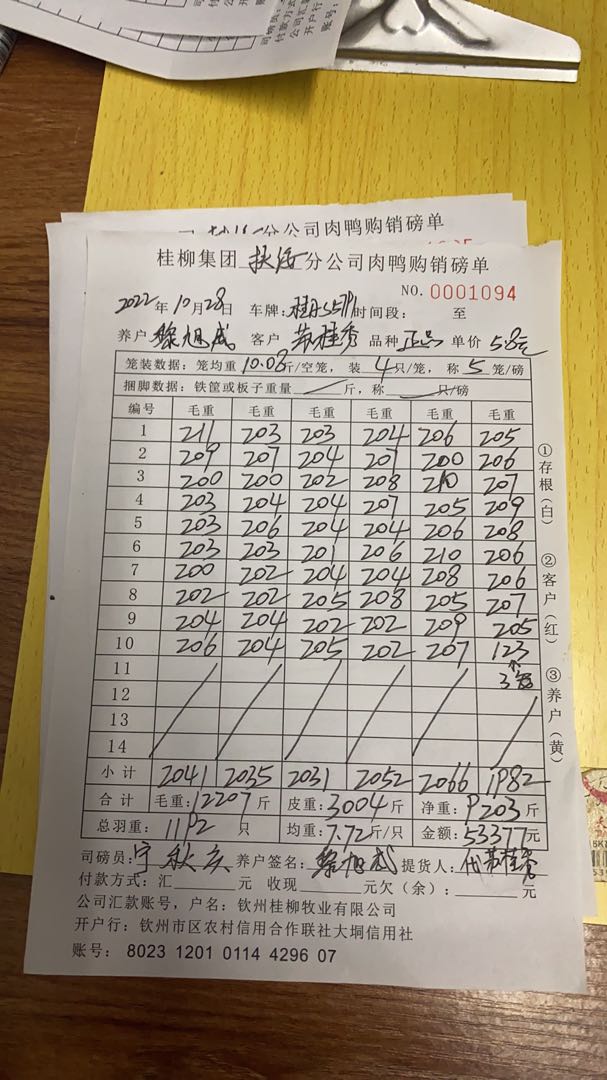 司磅员：
付款方式
公司汇
开户行
账号：
分公司肉鸭购销磅单
桂柳集团 扶海 分公司肉鸭购销磅单
NO. 0001094
2022年10月28日 车牌: 时间段: 至
养户 黎旭威 客户 苏桂秀 品种 正品 单价 5.8元
笼装数据: 笼均重 10.08斤/空笼, 装 4只/笼, 称 5笼/磅
捆脚数据: 铁筐或板子重量 斤, 称 只/磅
编号 毛重 毛重 毛重 毛重 毛重 毛重
1 211 203 203 204 206 205
2 209 207 204 207 200 206
3 200 200 202 208 210 207
4 203 204 204 207 205 209
5 203 206 204 204 206 208
6 203 203 201 206 210 206
7 200 202 204 204 208 206
8 202 202 205 208 205 207
9 204 204 202 202 209 205
10 206 204 205 202 207 123
11 3笼
12
13
14
小计 2041 2035 2031 2052 2066 1982
合计 毛重: 12207斤 皮重: 3004斤 净重: 9203斤
总羽重: 1192 只 均重: 7.72斤/只 金额: 53377元
司磅员: 宁秋庆 养户签名: 黎旭威 提货人: 代苏桂秀
付款方式: 汇 元 收现 元欠(余): 元
公司汇款账号, 户名: 钦州桂柳牧业有限公司
开户行: 钦州市区农村信用合作联社大垌信用社
账号: 8023 1201 0114 4296 07
①存根(白) ②客户(红) ③养户(黄)